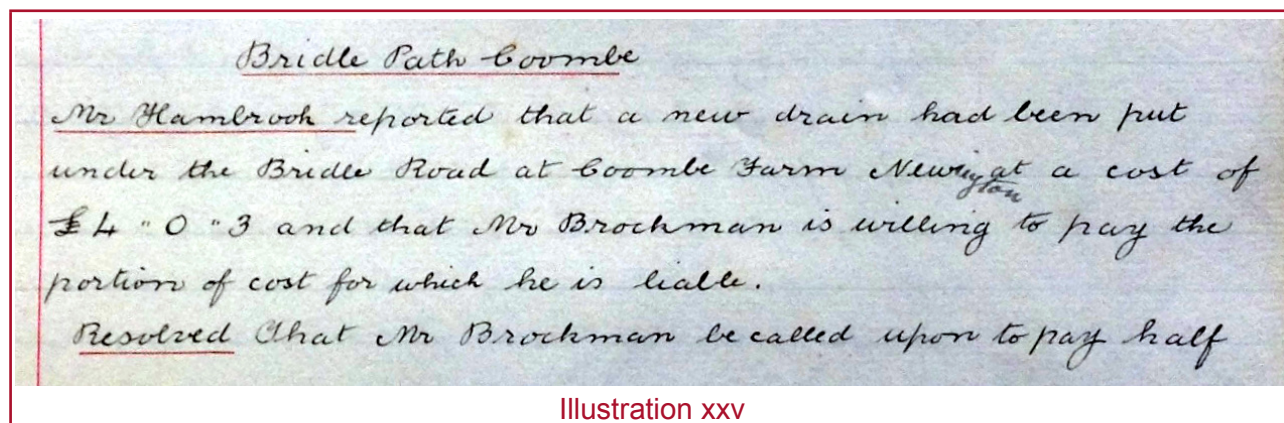 Bridle Path Coombe
Mr Hambrook reported that a new drain had been put
under the Bridle Road at Coombe Farm Newington at a cost of
£4 " 0 " 3 and that Mr Brockman is willing to pay the
portion of cost for which he is liable.
Resolved That Mr Brockman be called upon to pay half
Illustration xxv